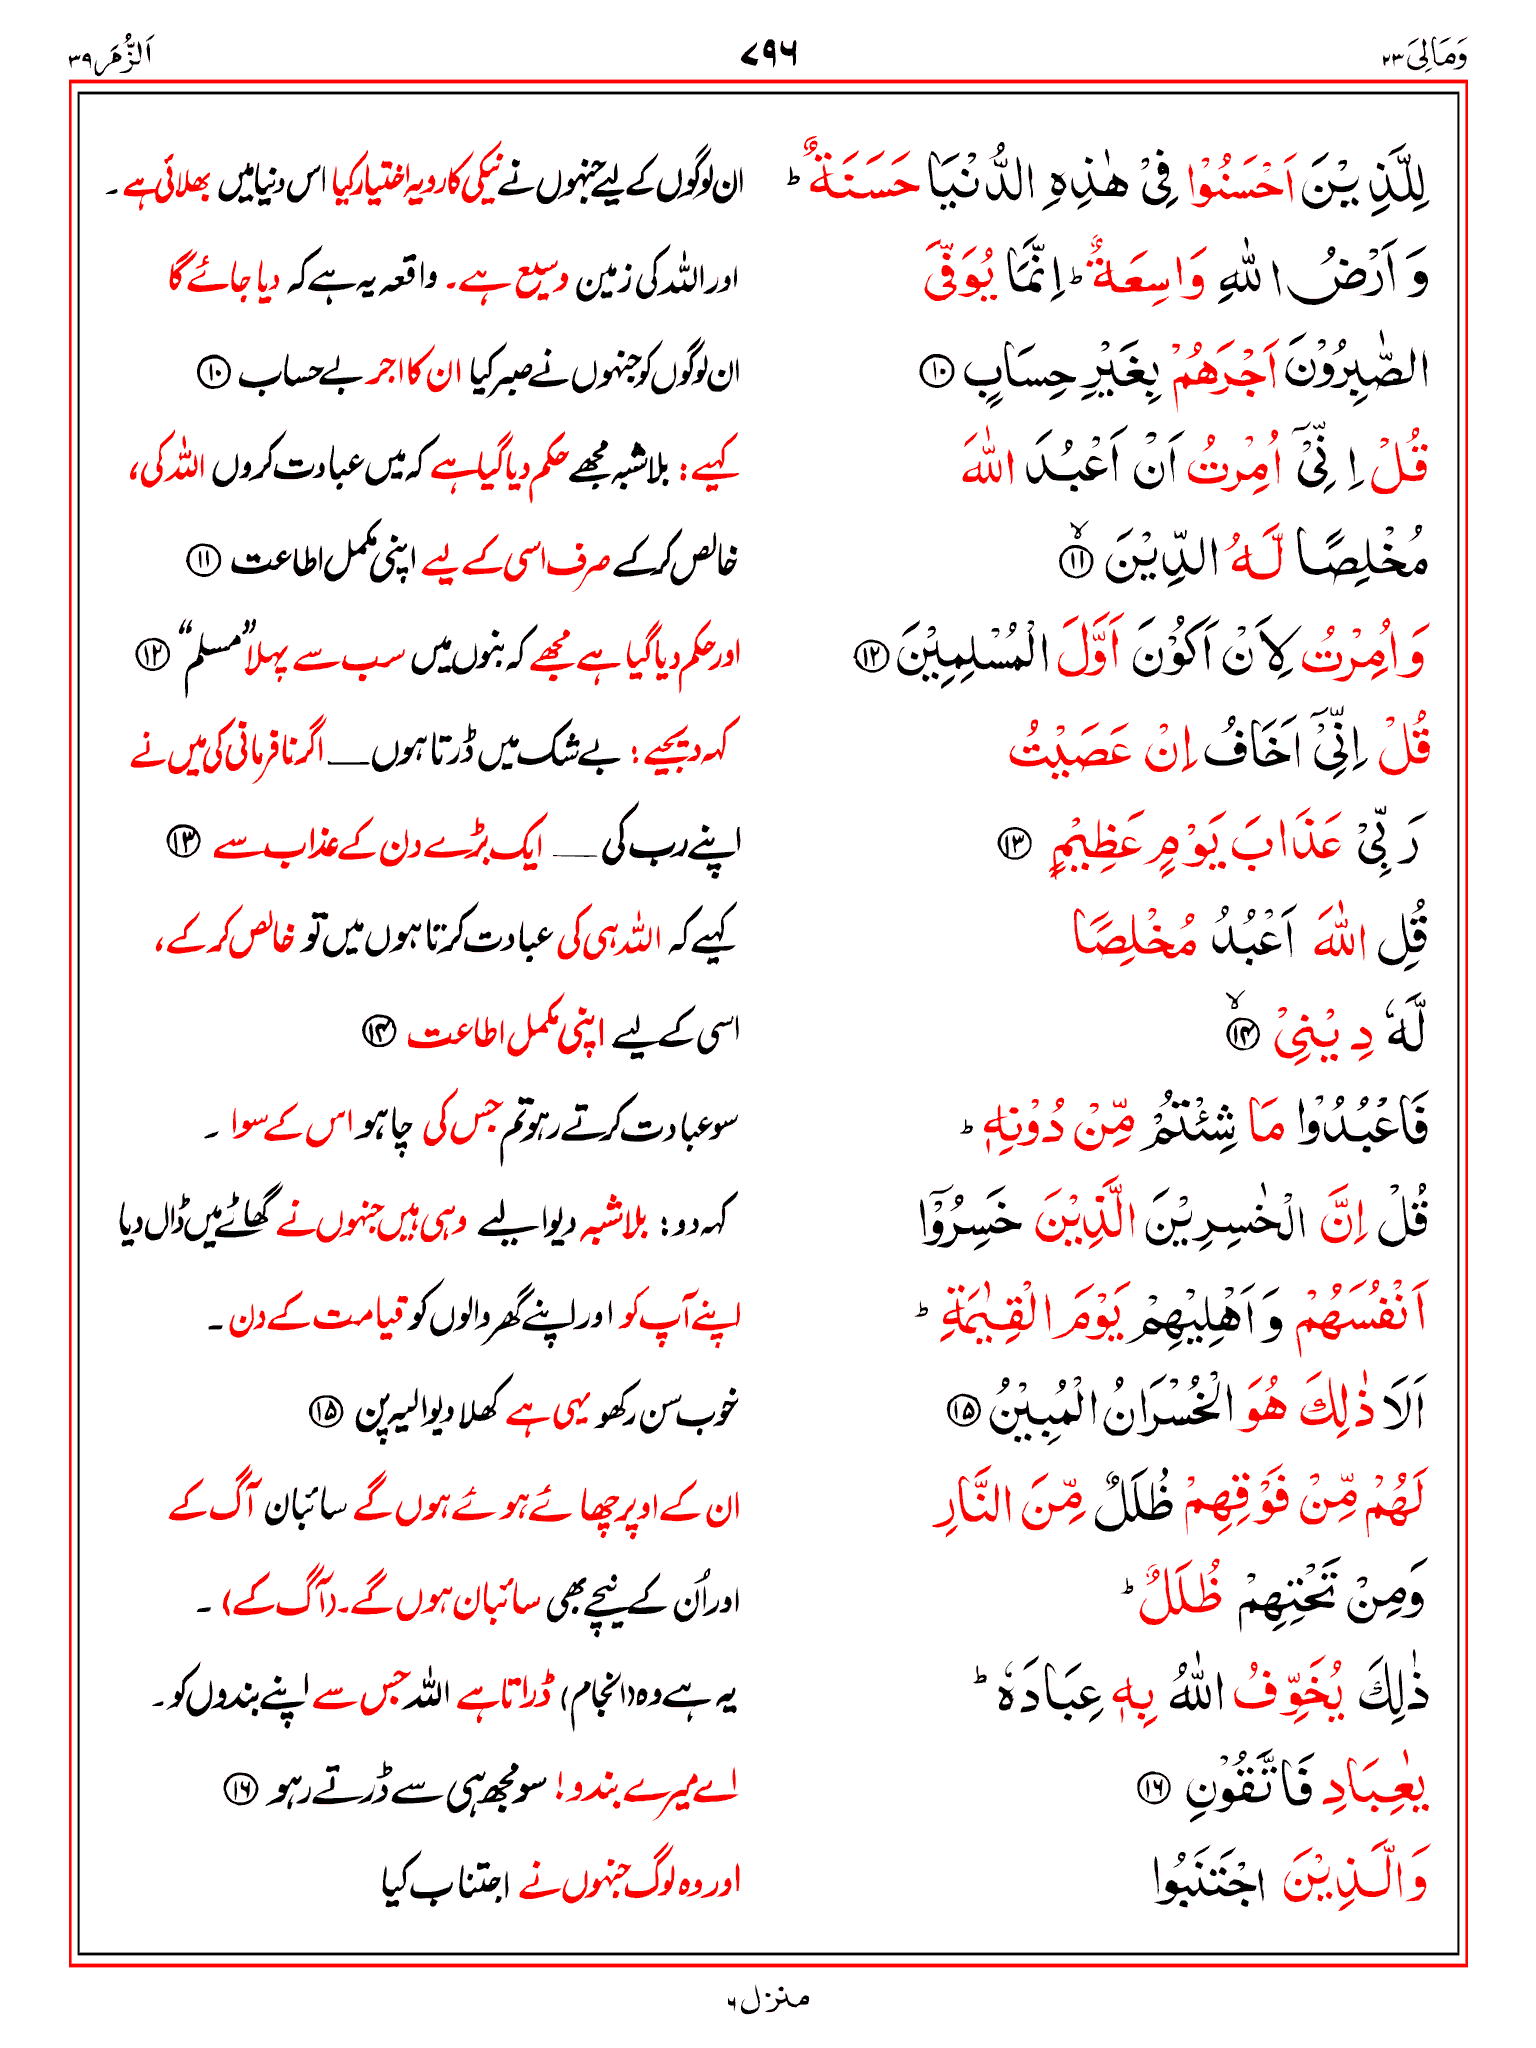 وَمَالِیَ ۲۳
۷۹۶
اَلزُّمَر ۳۹
لِلَّذِيْنَ اَحْسَنُوْا فِىْ هٰذِهِ الدُّنْيَا حَسَنَةٌ ؕ ان لوگوں کے لیے جنہوں نے نیکی کا رویہ اختیار کیا اس دنیا میں بھلائی ہے ۔
وَ اَرْضُ اللّٰهِ وَاسِعَةٌ ؕ اِنَّمَا يُوَفَّى اور اللہ کی زمین وسیع ہے۔ واقعہ یہ ہے کہ دیا جائے گا
الصّٰبِرُوْنَ اَجْرَهُمْ بِغَيْرِ حِسَابٍ ۱۰ ان لوگوں کو جنہوں نے صبر کیا ان کا اجر بے حساب ۱۰
قُلْ اِنِّىْۤ اُمِرْتُ اَنْ اَعْبُدَ اللّٰهَ کہیے: بلاشبہ مجھے حکم دیا گیا ہے کہ میں عبادت کروں اللہ کی،
مُخْلِصًا لَّهُ الدِّيْنَ ۙ ۱۱ خالص کر کے صرف اسی کے لیے اپنی مکمل اطاعت ۱۱
وَاُمِرْتُ لِاَنْ اَكُوْنَ اَوَّلَ الْمُسْلِمِيْنَ ۱۲ اور حکم دیا گیا ہے مجھے کہ بنوں میں سب سے پہلا ”مسلم“ ۱۲
قُلْ اِنِّىْۤ اَخَافُ اِنْ عَصَيْتُ کہہ دیجیے: بے شک میں ڈرتا ہوں__ اگر نافرمانی کی میں نے
رَبِّىْ عَذَابَ يَوْمٍ عَظِيْمٍ ۱۳ اپنے رب کی __ ایک بڑے دن کے عذاب سے ۱۳
قُلِ اللّٰهَ اَعْبُدُ مُخْلِصًا کہیے کہ اللہ ہی کی عبادت کرتا ہوں میں تو خالص کر کے،
لَّهٗ دِيْنِىْ ۙ ۱۴ اسی کے لیے اپنی مکمل اطاعت ۱۴
فَاعْبُدُوْا مَا شِئْتُمْ مِّنْ دُوْنِهٖ ؕ سو عبادت کرتے رہو تم جس کی چاہو اس کے سوا ۔
قُلْ اِنَّ الْخٰسِرِيْنَ الَّذِيْنَ خَسِرُوْۤا کہہ دو: بلاشبہ دیوالیے وہی ہیں جنہوں نے گھاٹے میں ڈال دیا
اَنْفُسَهُمْ وَ اَهْلِيْهِمْ يَوْمَ الْقِيٰمَةِ ؕ اپنے آپ کو اور اپنے گھر والوں کو قیامت کے دن ۔
اَلَا ذٰلِكَ هُوَ الْخُسْرَانُ الْمُبِيْنُ ۱۵ خوب سن رکھو یہی ہے کھلا دیوالیہ پن ۱۵
لَهُمْ مِّنْ فَوْقِهِمْ ظُلَلٌ مِّنَ النَّارِ ان کے اوپر چھائے ہوئے ہوں گے سائبان آگ کے
وَمِنْ تَحْتِهِمْ ظُلَلٌ ؕ اور اُن کے نیچے بھی سائبان ہوں گے۔ (آگ کے) ۔
ذٰلِكَ يُخَوِّفُ اللّٰهُ بِهٖ عِبَادَهٗ ؕ یہ ہے وہ (انجام) ڈراتا ہے اللہ جس سے اپنے بندوں کو ۔
يٰعِبَادِ فَاتَّقُوْنِ ۱۶ اے میرے بندو! سو مجھ ہی سے ڈرتے رہو ۱۶
وَالَّذِيْنَ اجْتَنَبُوا اور وہ لوگ جنہوں نے اجتناب کیا
منزل ۶